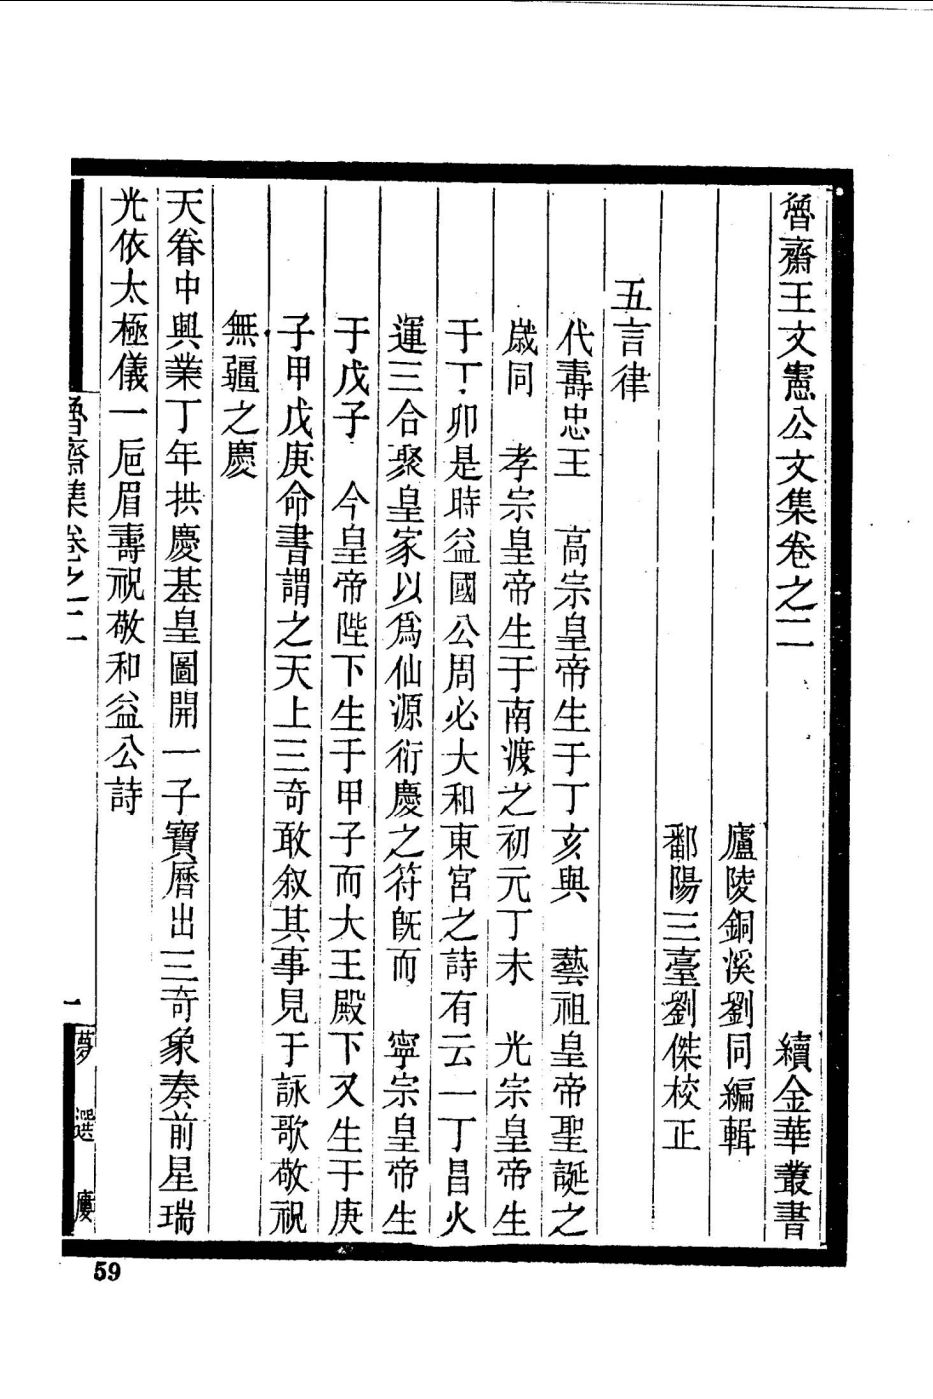 魯齋王文憲公文集卷之二 續金華叢書
廬陵銅溪劉同編輯
鄱陽三臺劉傑校正
五言律
代壽忠王 高宗皇帝生于丁亥與 藝祖皇帝聖誕之
歲同 孝宗皇帝生于南渡之初元丁未 光宗皇帝生
于丁卯是時益國公周必大和東宮之詩有云一丁昌火
運三合聚皇家以爲仙源衍慶之符旣而 寧宗皇帝生
于戊子 今皇帝陛下生于甲子而大王殿下又生于庚
子甲戊庚命書謂之天上三奇敢叙其事見于詠歌敬祝
無疆之慶
天眷中興業丁年拱慶基皇圖開一子寶曆出三奇象奏前星瑞
光依太極儀一巵眉壽祝敬和益公詩
魯齋集卷之二 一 夢選廔
59